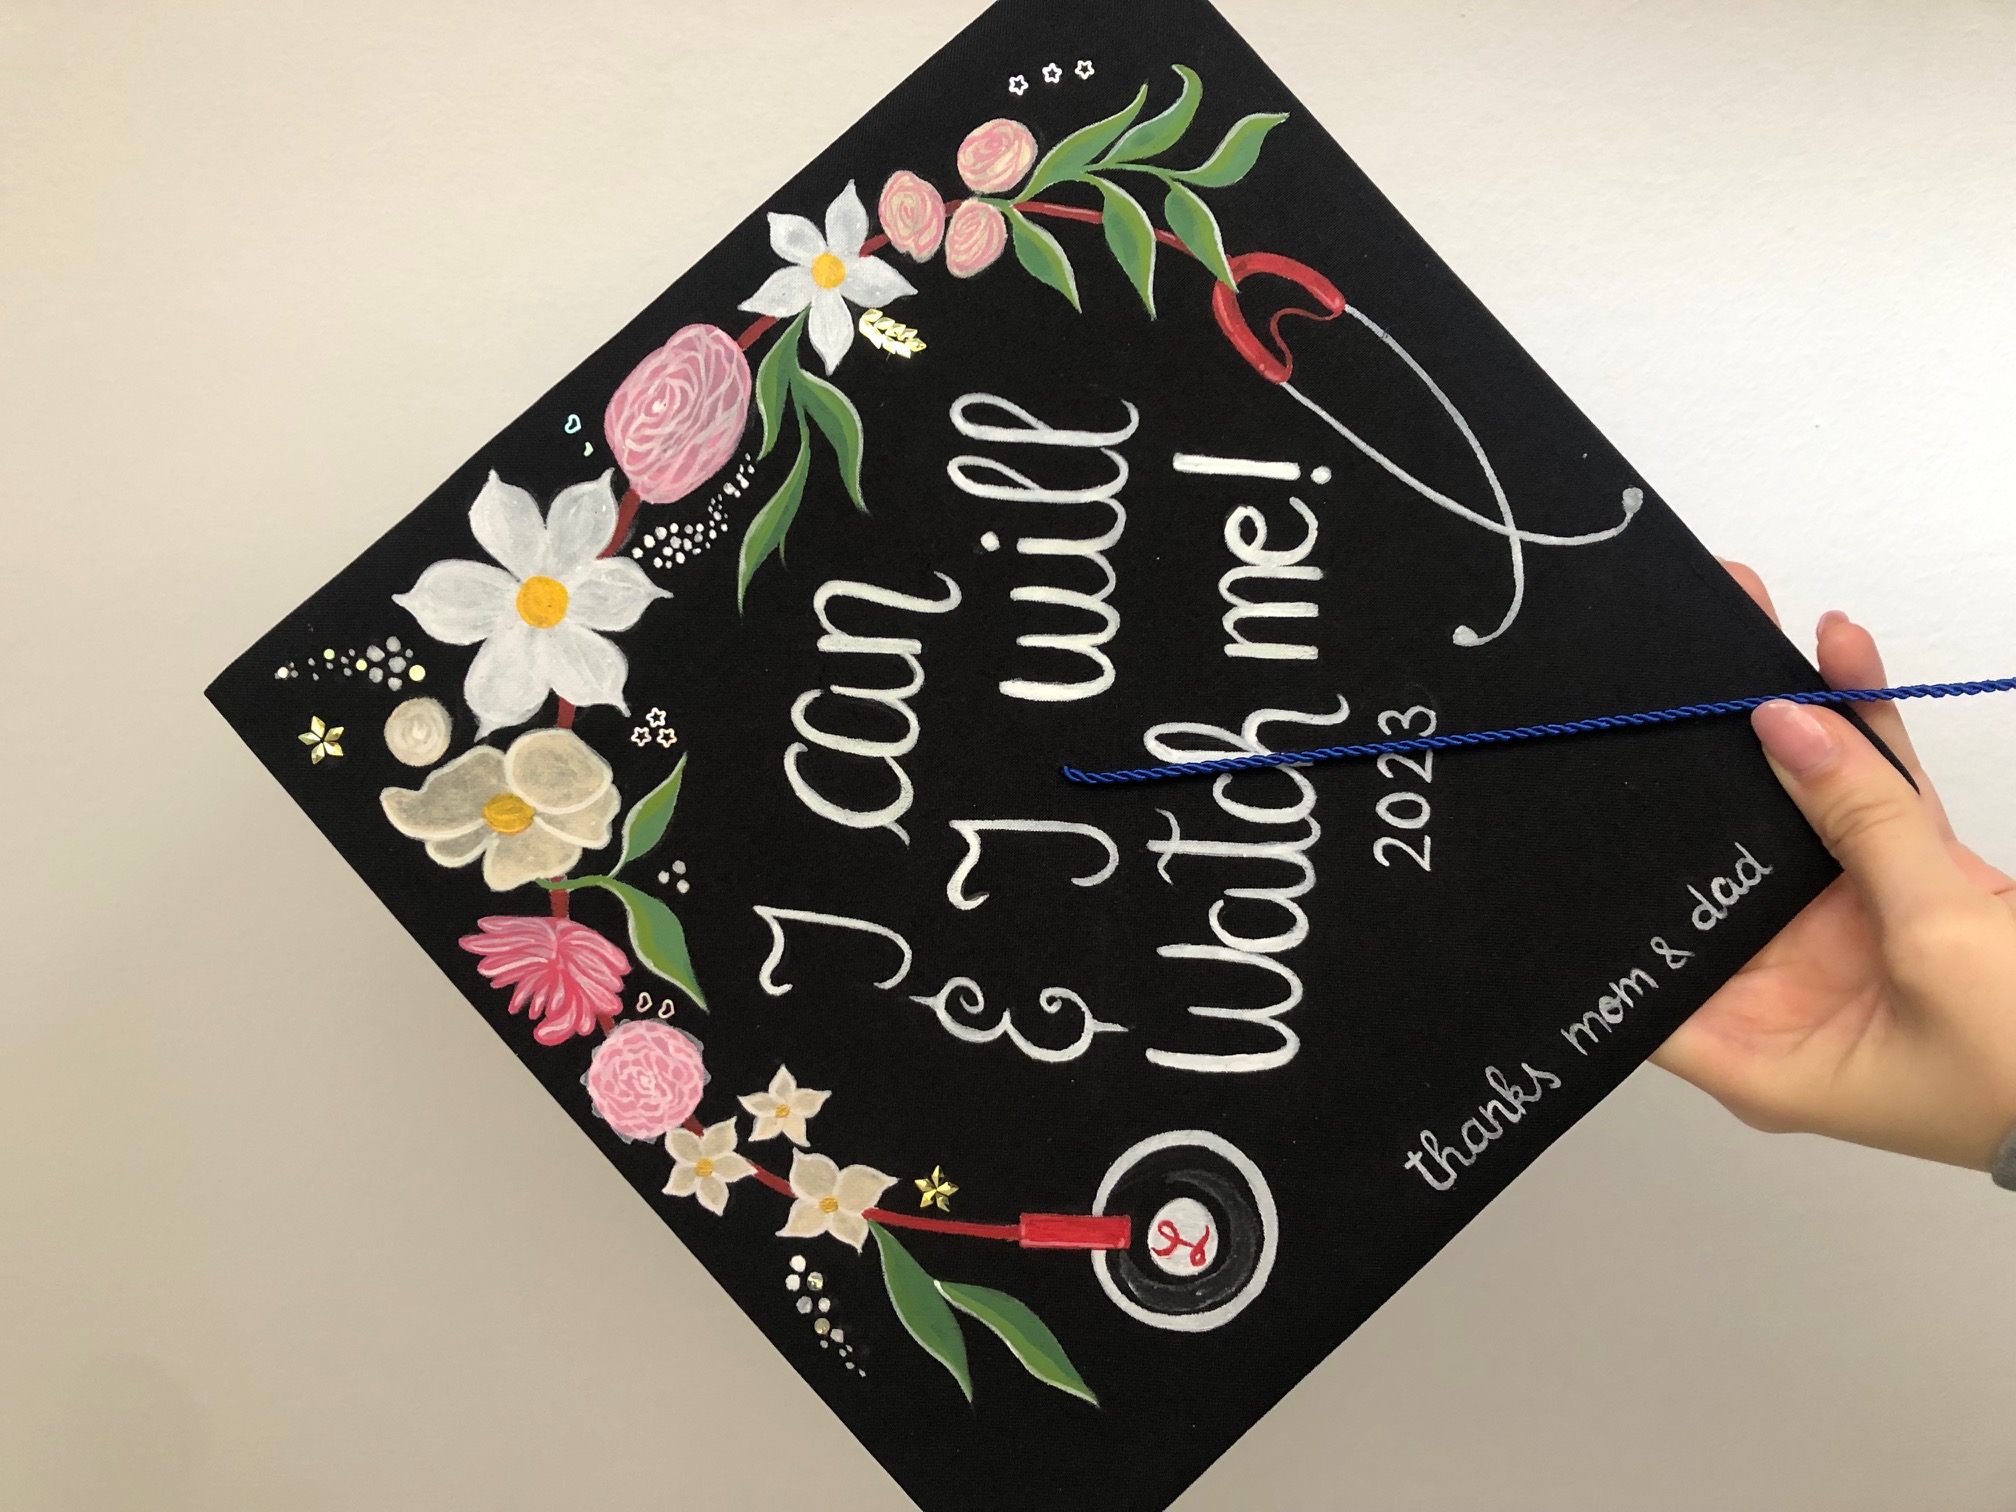 I can
& I will
Watch me!
2023
L
thanks mom & dad